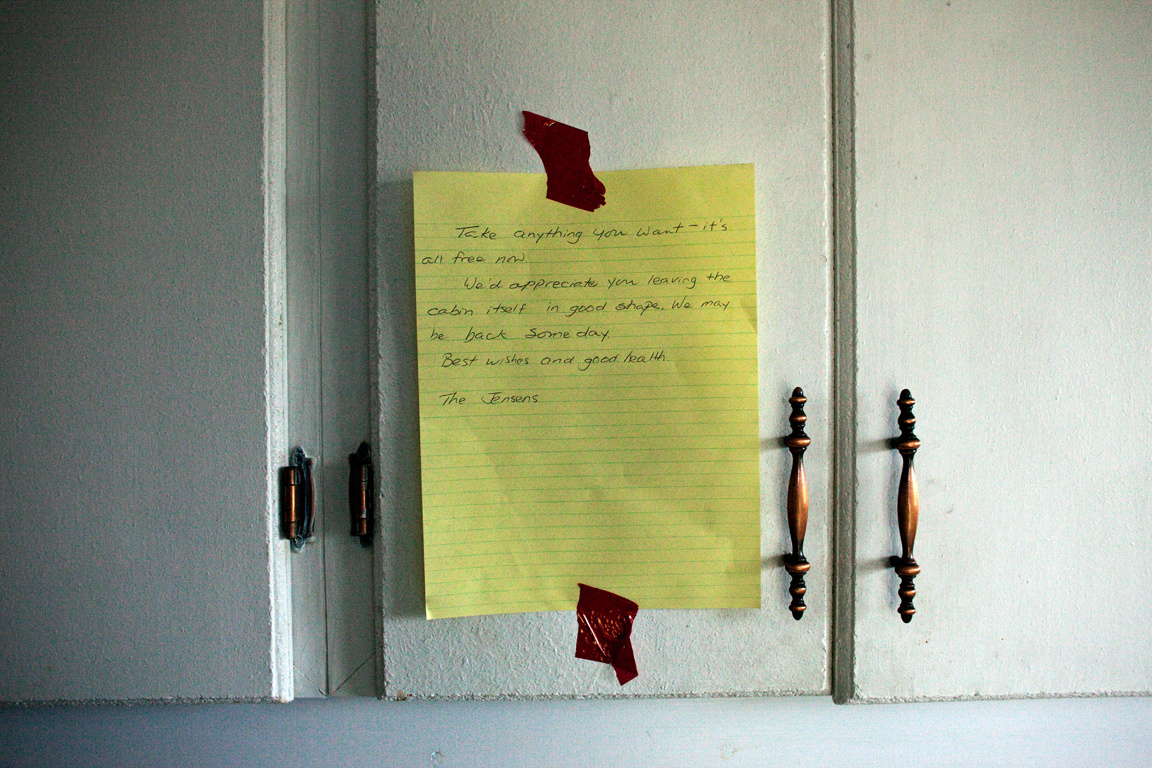 Take anything you want – it's
all free now.
We'd appreciate you leaving the
cabin itself in good shape. We may
be back someday.
Best wishes and good health
The Jensens